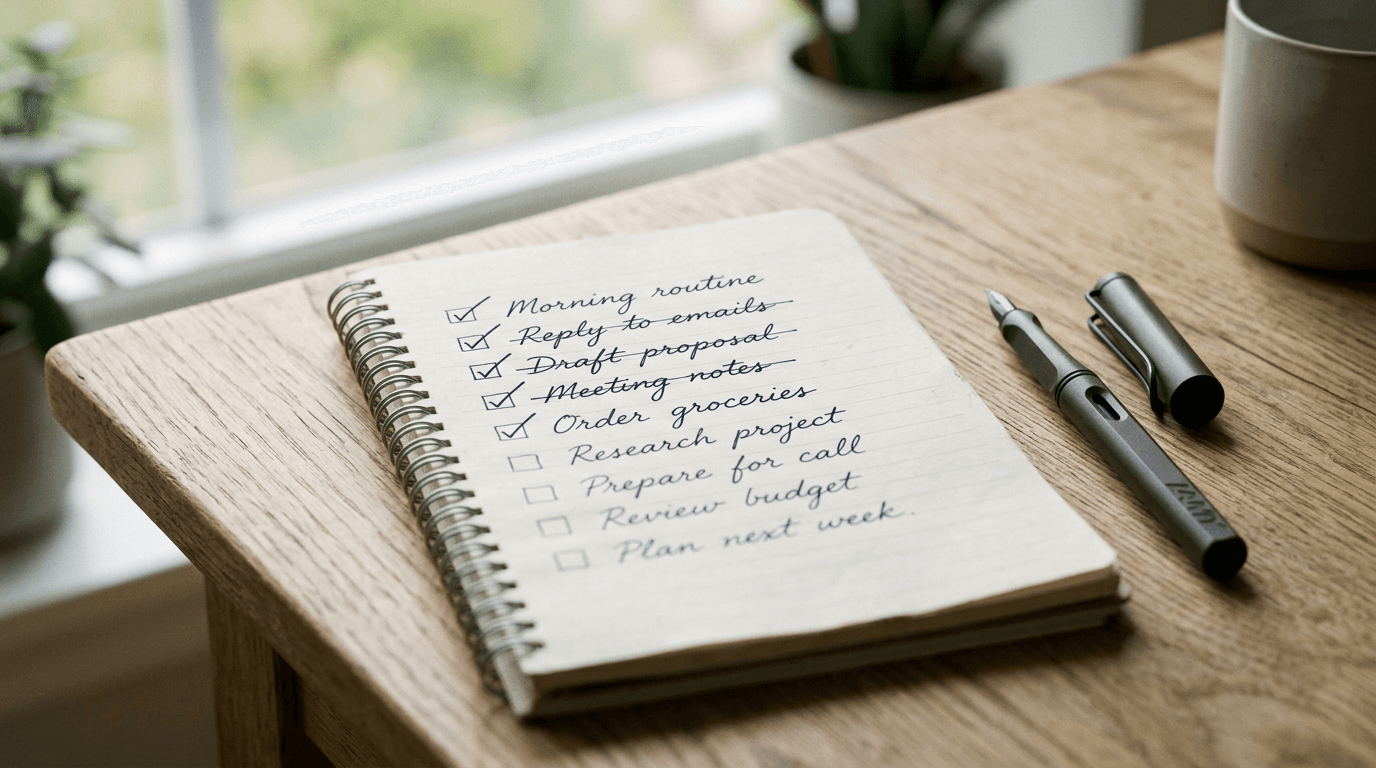 Morning routine
Reply to emails
Draft proposal
Meeting notes
Order groceries
Research project
Prepare for call
Review budget
Plan next week.